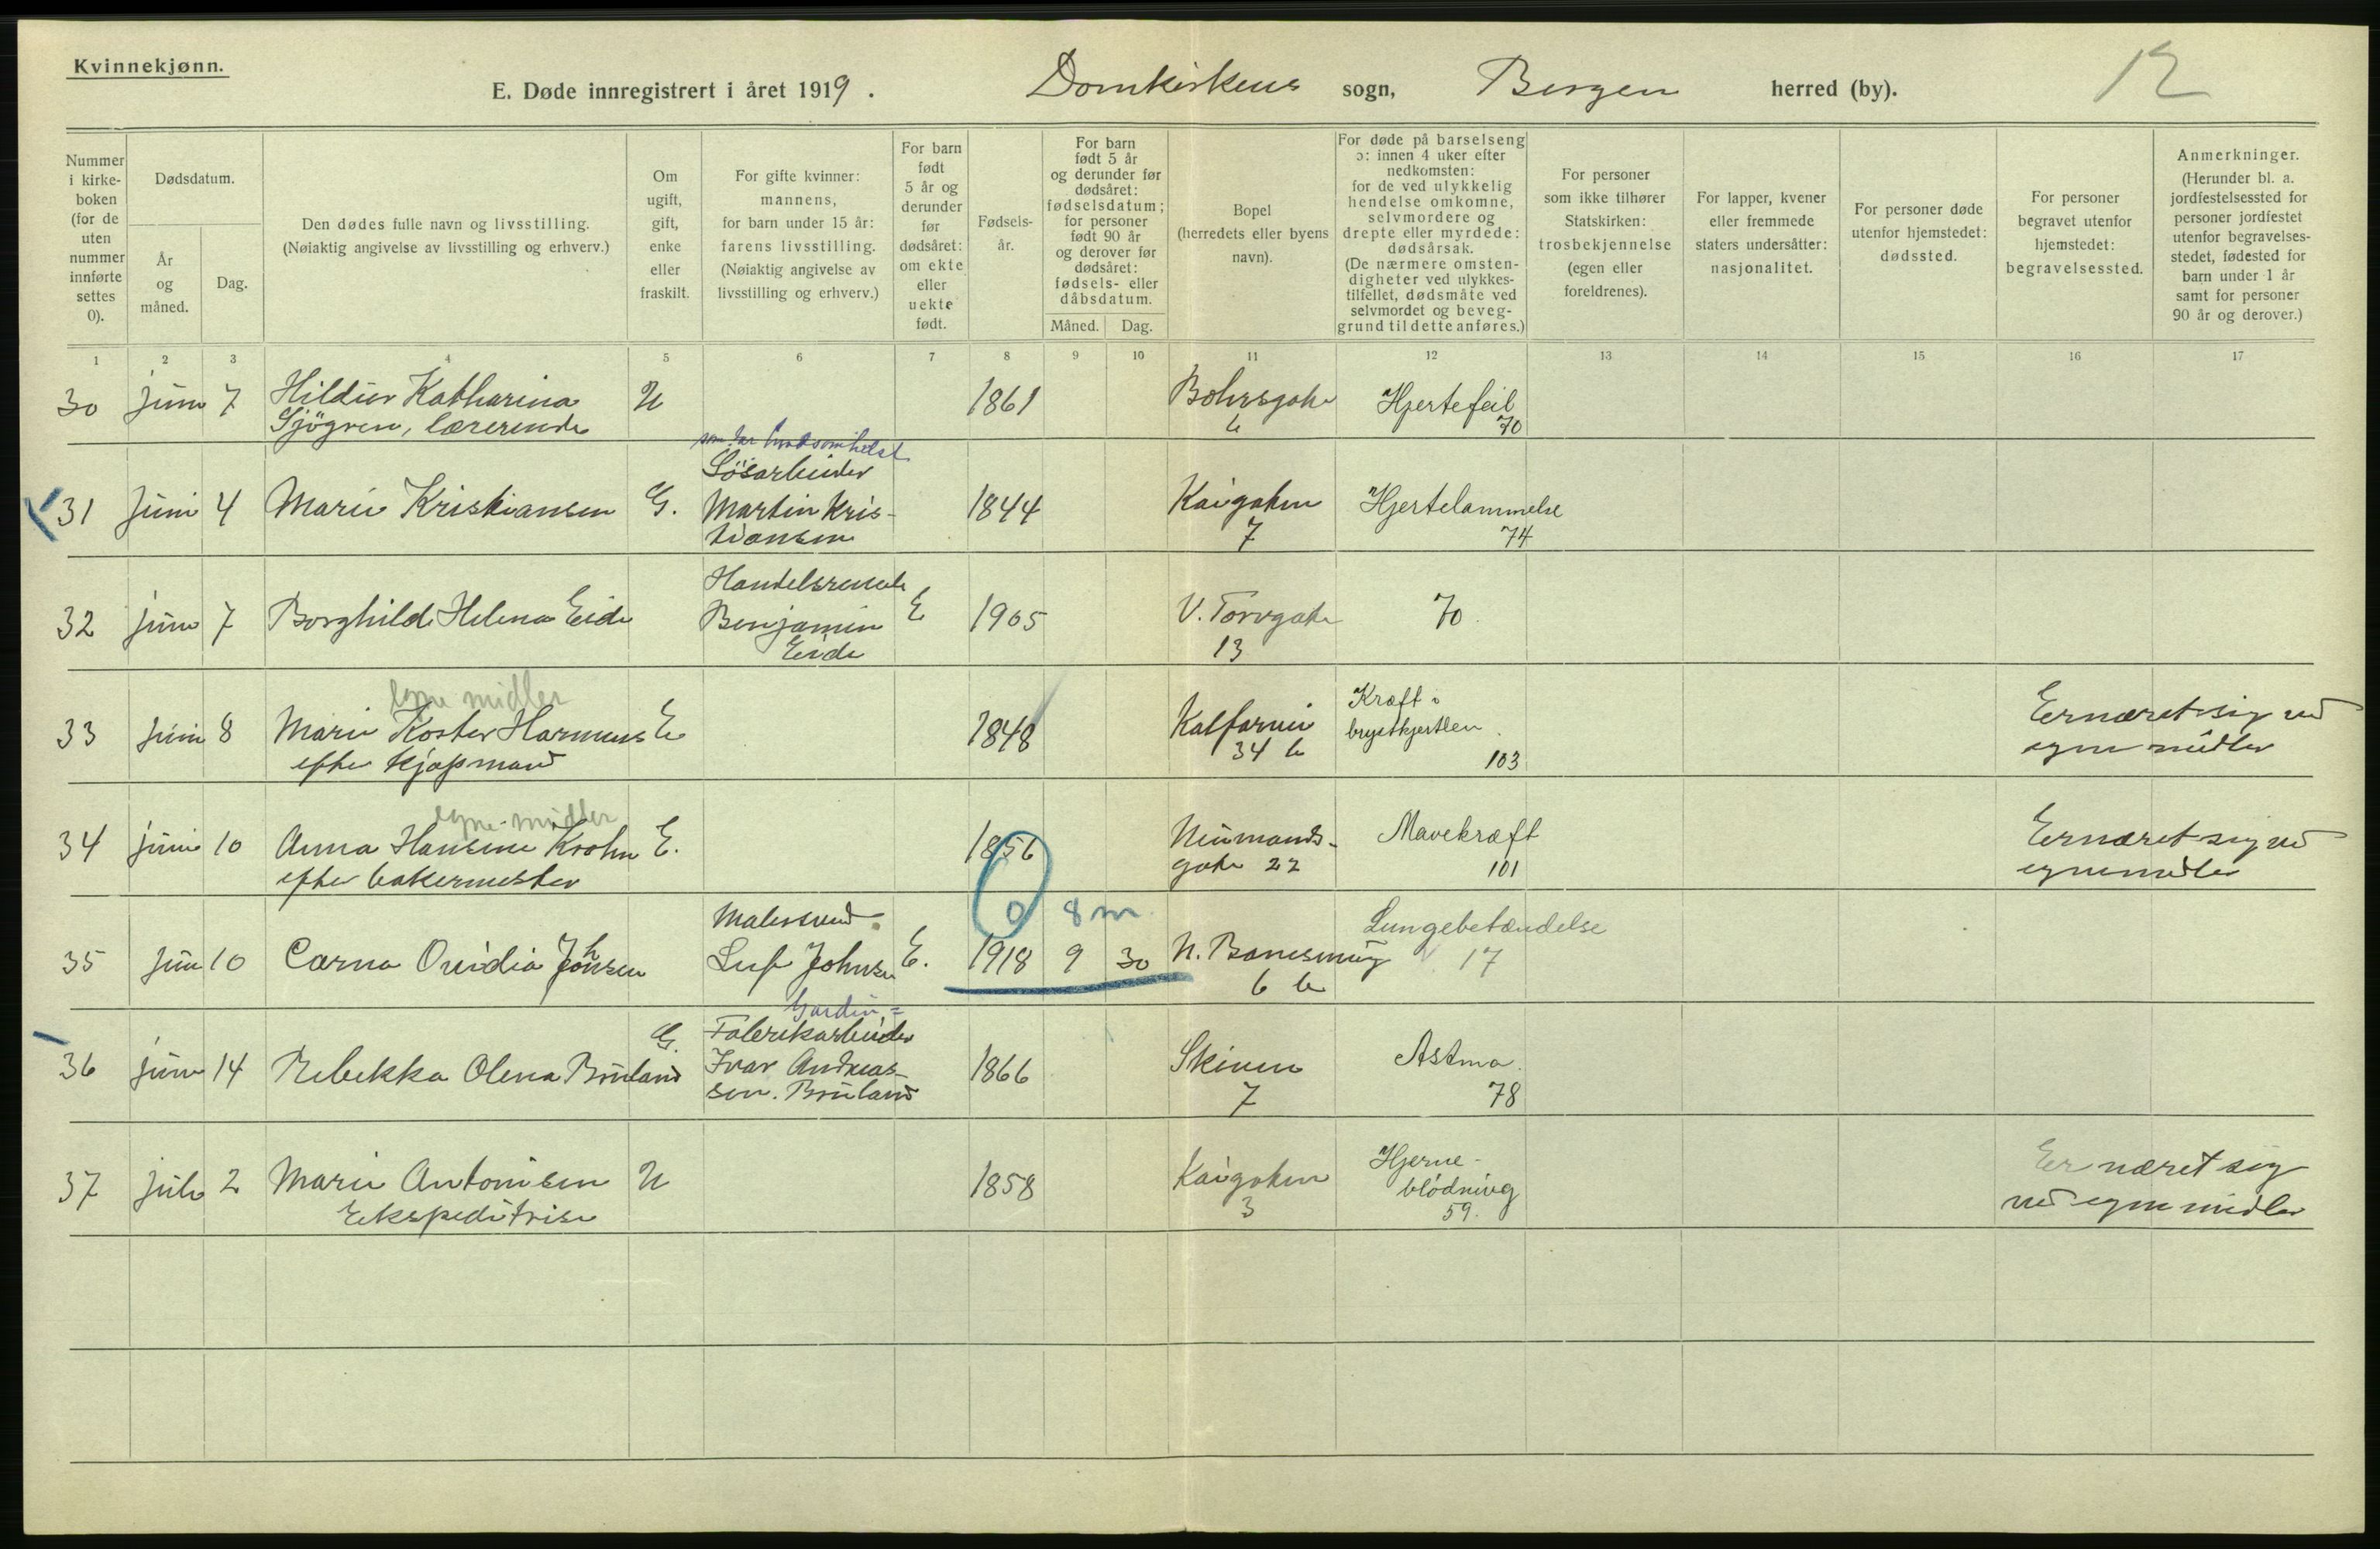 Kvinnekjønn.
E. Døde innregistrert i året 1919.
Domkirkens sogn, Bergen herred (by).
12
Nummer i kirke-boken (for de uten nummer innførte settes 0).
Dødsdatum.
År og måned.
Dag.
Den dødes fulle navn og livsstilling.
(Nøiaktig angivelse av livsstilling og erhverv.)
Om ugift, gift, enke eller fraskilt.
For gifte kvinner: mannens, for barn under 15 år: farens livsstilling. (Nøiaktig angivelse av livsstilling og erhverv.)
For barn født 5 år og derunder før dødsåret: om ekte eller uekte født.
Fødsels-år.
For barn født 5 år og derunder før dødsåret: fødselsdatum; for personer født 90 år og derover før dødsåret: fødsels- eller dåbsdatum.
Måned. Dag.
Bopel (herredets eller byens navn).
For døde på barselseng ɔ: innen 4 uker efter nedkomsten: for de ved ulykkelig hendelse omkomne, selvmordere og drepte eller myrdede: dødsårsak. (De nærmere omsten-digheter ved ulykkes-tilfellet, dødsmåte ved selvmordet og beveg-grund til dette anføres.)
For personer som ikke tilhører Statskirken: trosbekjennelse (egen eller foreldrenes).
For lapper, kvener eller fremmede staters undersåtter: nasjonalitet.
For personer døde utenfor hjemstedet: dødssted.
For personer begravet utenfor hjemstedet: begravelsessted.
Anmerkninger. (Herunder bl. a. jordfestelsessted for personer jordfestet utenfor begravelses-stedet, fødested for barn under 1 år samt for personer 90 år og derover.)
1 2 3 4 5 6 7 8 9 10 11 12 13 14 15 16 17
30 juni 7 Hildur Katharina U 1861 Bohrsgate Hjertefeil
Sjögren, lærerinde 6 70
som har hvadsomhelst
Løsarbeider
31 Juni 4 Marie Kristiansen G. Martin Kris- 1844 Kaigaten Hjertelammelse
tiansen 7 74
Handelsreisende
32 juni 7 Borghild Helena Eide Benjamin E 1905 V. Torvgate 70
Eide 13
egne midler Kræft i
33 Juni 8 Marie Koster Harmens E 1848 Kalfarvei brystkjertlen Ernæret sig ved
efter kjøpmand 34 b 103 egne midler
egne midler
34 juni 10 Anna Hansine Krohn E. 1856 Neumands- Mavekræft Ernæret sig ved
efter bakermester gate 22 101 egne midler
0 8 m
Malersvend Lungebetændelse
35 Juni 10 Carna Ovidia Johnsen Leif Johnsen E. 1918 9 30 N. Banesmug 17
6 b
Gardin=
G. Fabrikarbeider
36 juni 14 Rebekka Olena Bruland Ivar Andreas- 1866 Skiven Astma.
sen. Bruland 7 78
37 juli 2 Marie Antonisen U 1858 Kaigaten Hjerne- Ernæret sig
Ekspeditrise 3 blödning ved egne midler
59.